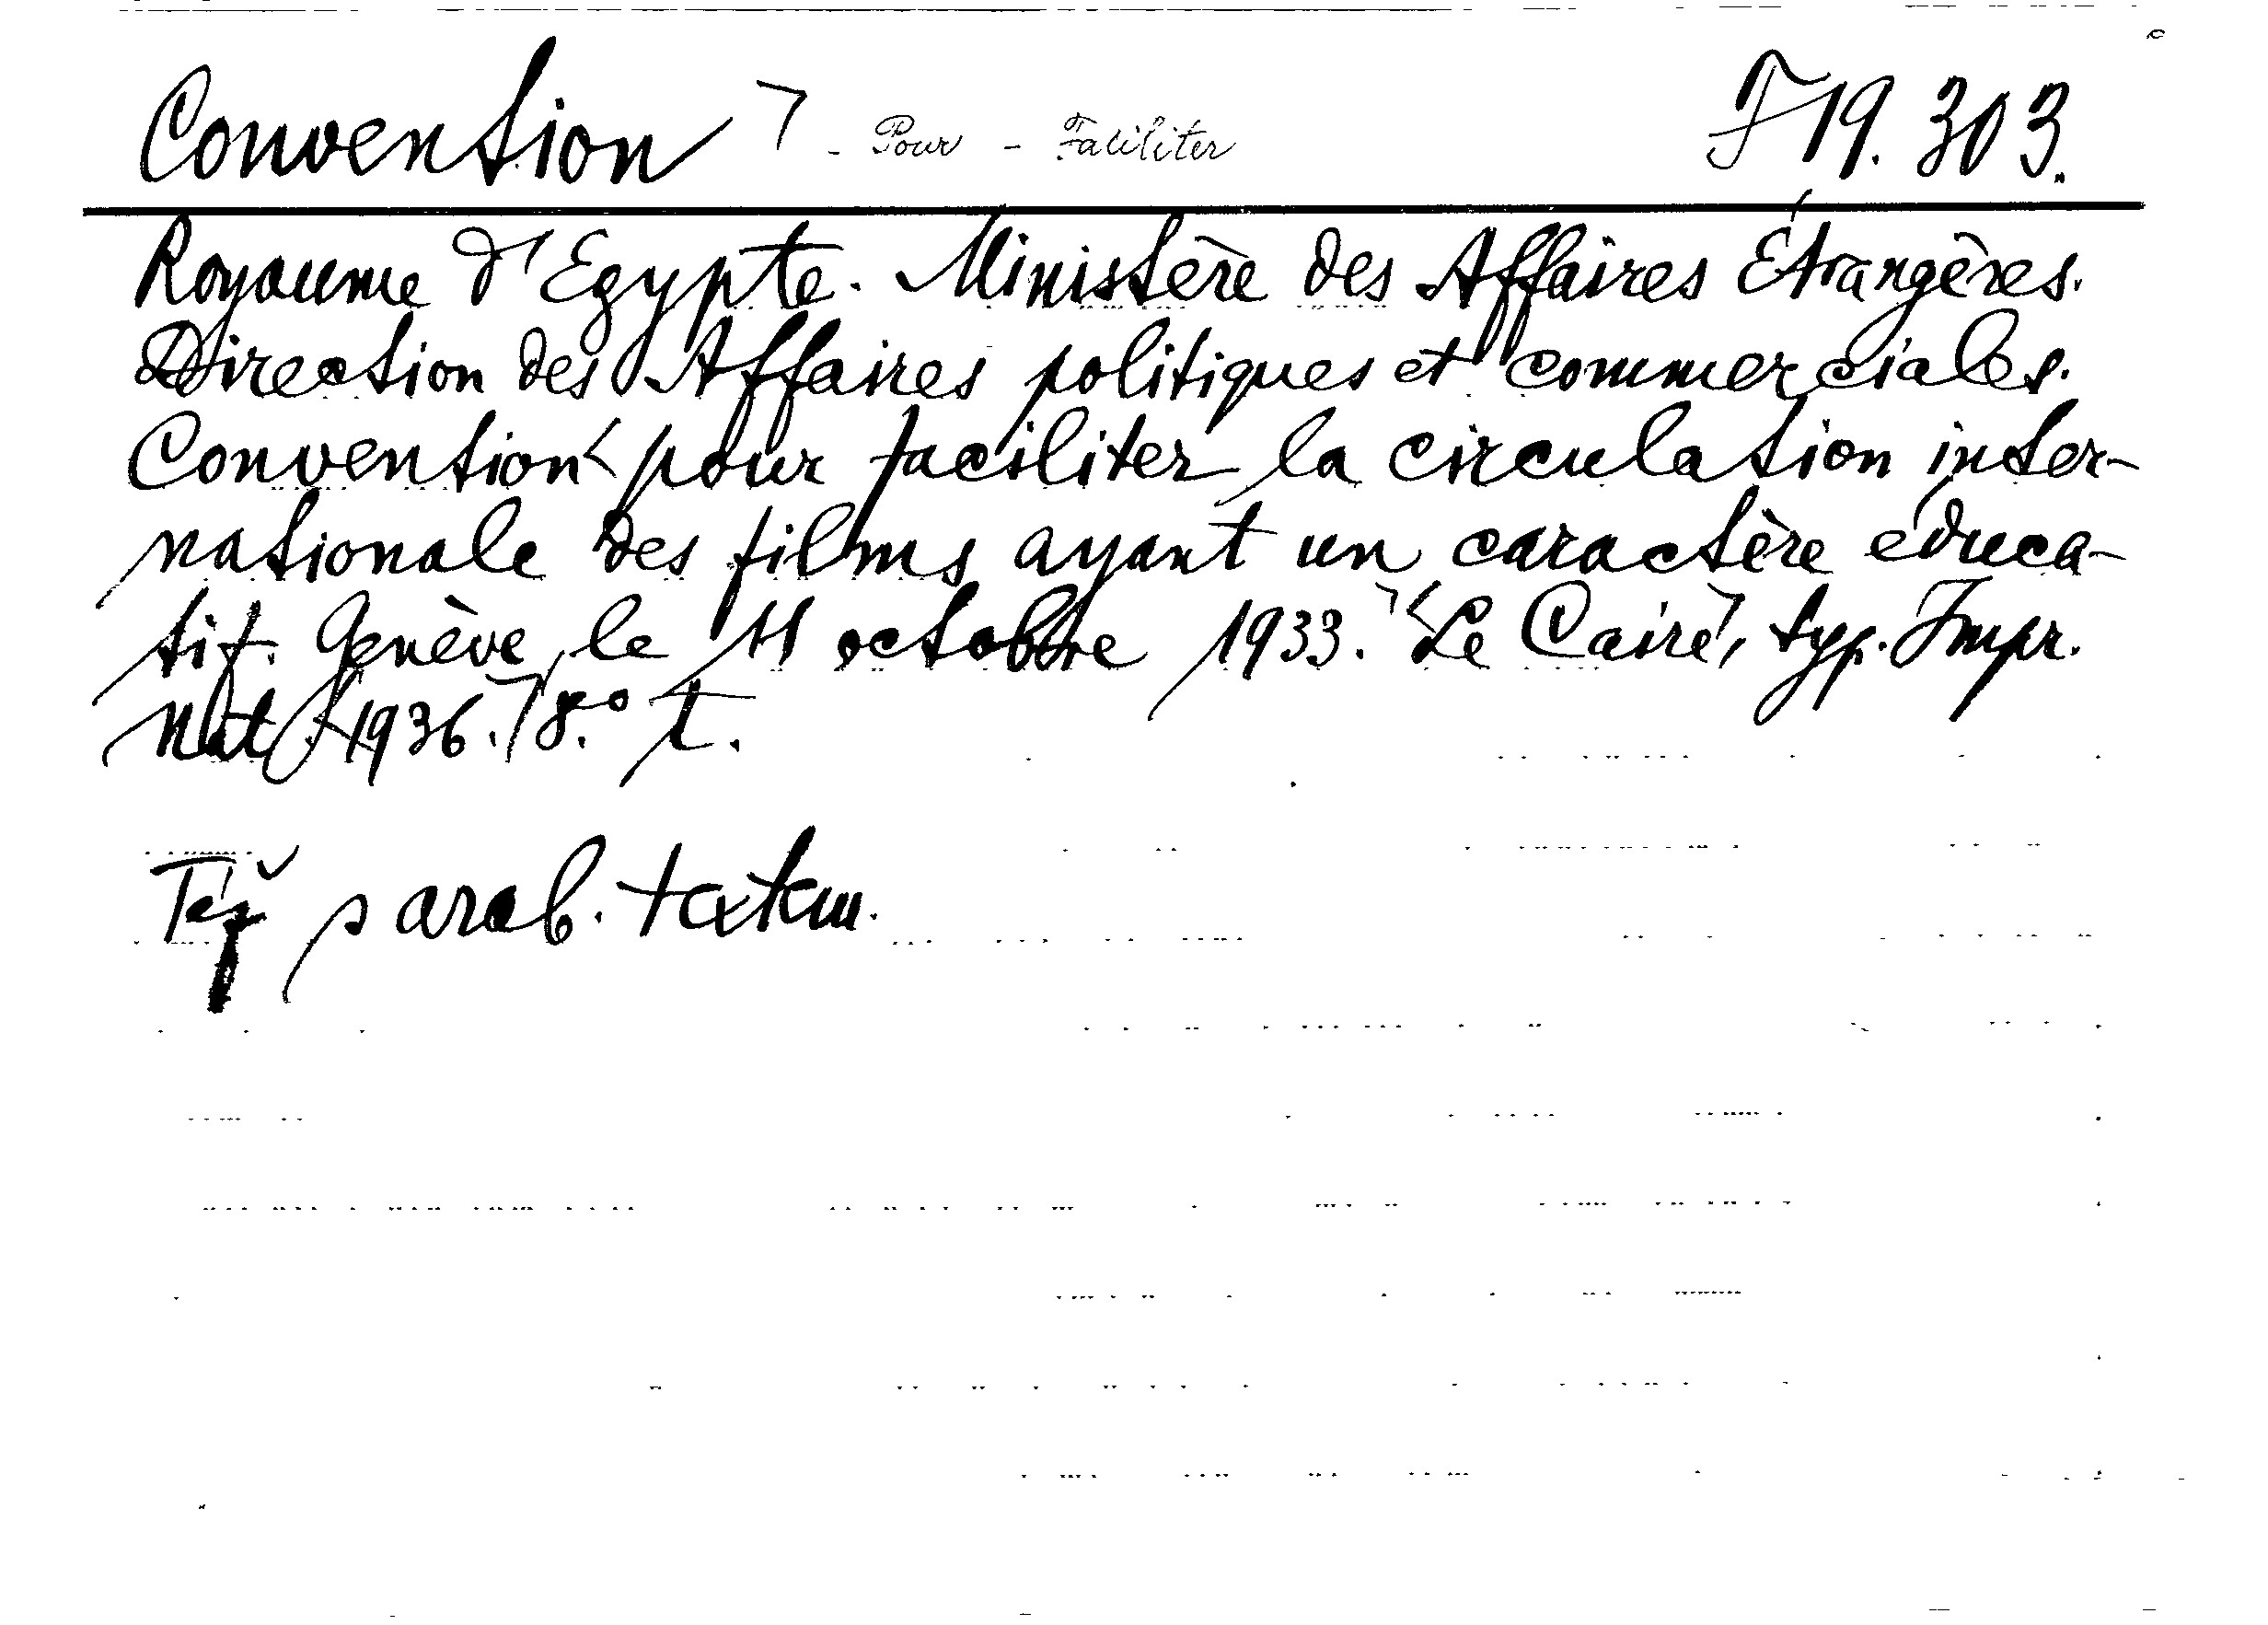 Convention - Pour - Faciliter F 19.303.
Royaume d'Egypte. Ministère des Affaires Étrangères.
Direction des Affaires politiques et commerciales.
Convention pour faciliter la circulation inter-
nationale des films ayant un caractère éduca-
tif. Genève, le 11 octobre 1933. Le Caire, typ. Impr.
Nat. 1936. 8.° t.
Též s arab. textem.